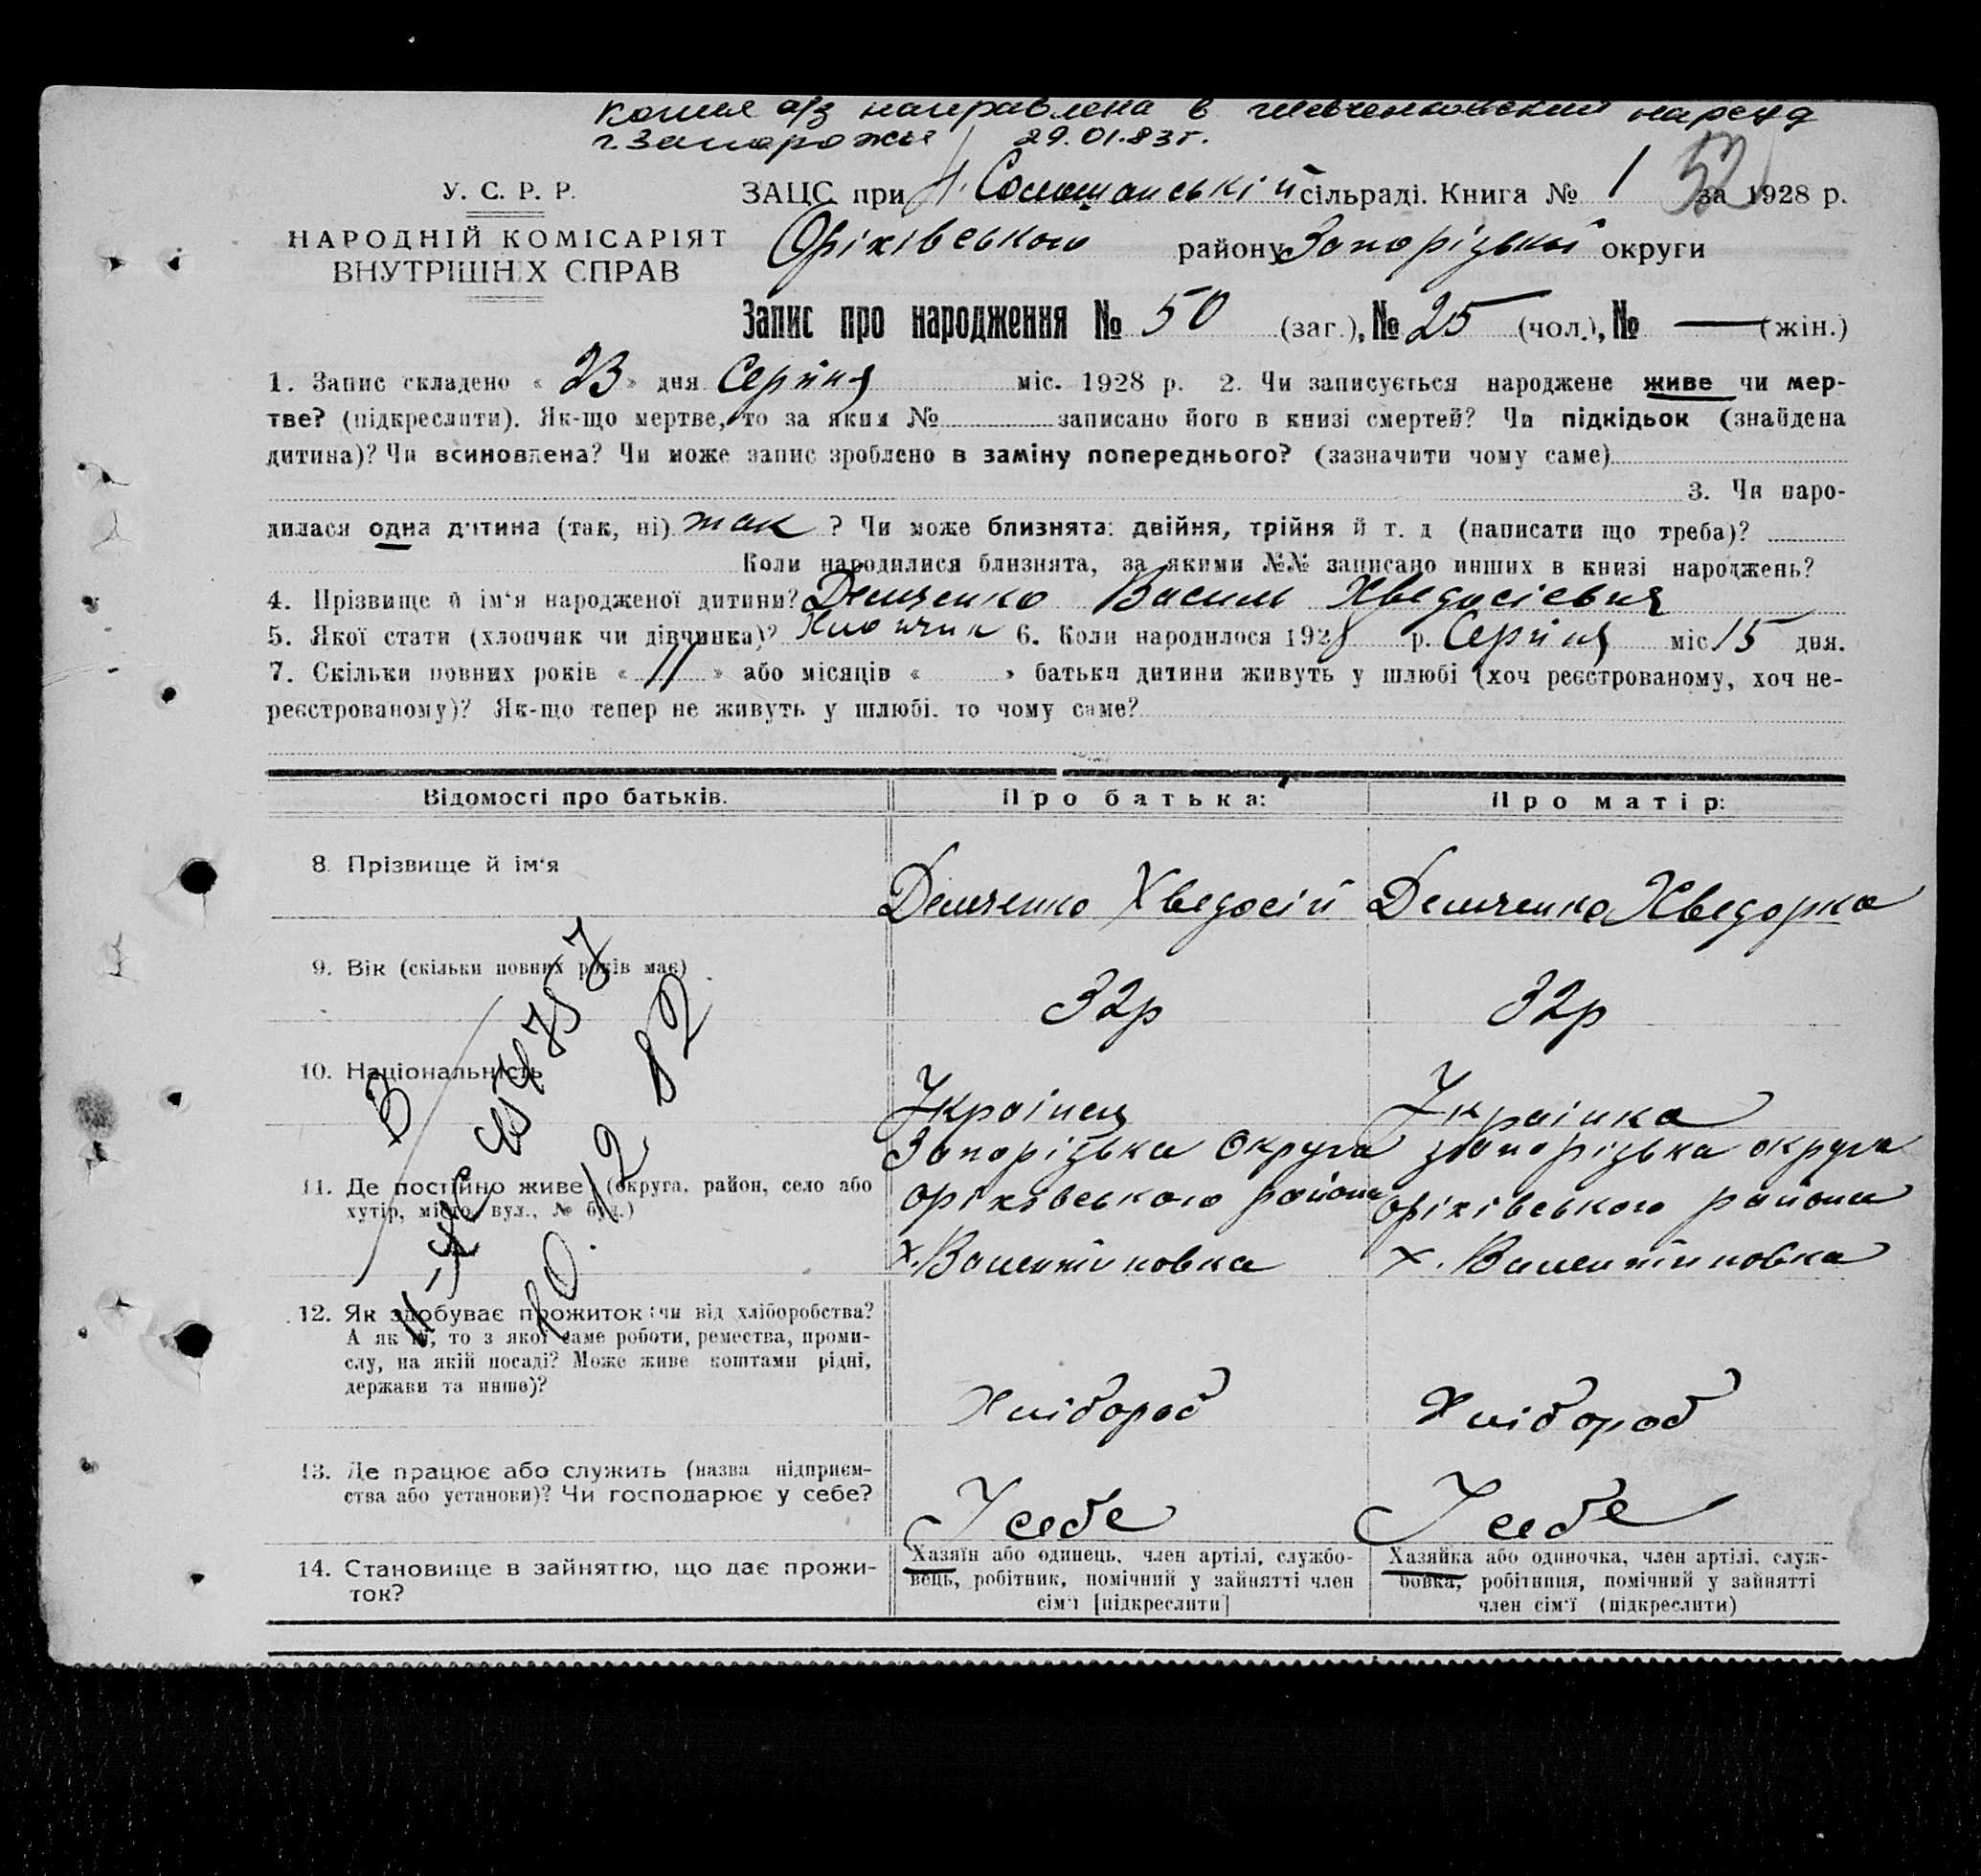 Копия а/з направлена в Шевченковский нарсуд
г. Запорожья 29.01.83 г.
52
У. С. Р. Р.
НАРОДНІЙ КОМІСАРІЯТ
ВНУТРІШНІХ СПРАВ
ЗАЦС при Н. Солошанській сільраді. Книга № 1 за 1928 р.
Оріхівського району Запорізької округи
Запис про народження № 50 (заг.), № 25 (чол.), № — (жін.)
1. Запис складено « 23 » дня Серпня міс. 1928 р. 2. Чи записується народжене живе чи мер-
тве? (підкреслити). Як-що мертве, то за яким № записано його в книзі смертей? Чи підкідьок (знайдена
дитина)? Чи всиновлена? Чи може запис зроблено в заміну попереднього? (зазначити чому саме)
3. Чи наро-
дилася одна дитина (так, ні) так ? Чи може близнята: двійня, трійня й т. д (написати що треба)?
Коли народилися близнята, за якими №№ записано инших в книзі народжень?
4. Прізвище й ім'я народженої дитини? Демченко Василь Хведосієвич
5. Якої стати (хлопчик чи дівчинка)? Хлопчик 6. Коли народилося 1928 р. Серпня міс 15 дня.
7. Скільки повних років « 11 » або місяців « » батьки дитини живуть у шлюбі (хоч реєстрованому, хоч не-
реєстрованому)? Як-що тепер не живуть у шлюбі, то чому саме?
Відомості про батьків. Про батька: Про матір:
8. Прізвище й ім'я Демченко Хведосій Демченко Хведорка
9. Вік (скільки повних років має) 32р 32р
10. Національність Українець Українка
11. Де постійно живе (округа, район, село або
хутір, місто, вул., № буд.)
Запорізька Округа
Оріхівського района
х. Валентіновка
Запорізька округа
Оріхівського района
х. Валентіновка
10.12.82
12. Як здобуває прожиток: чи від хліборобства?
А як ні, то з якої саме роботи, ремества, проми-
слу, на якій посаді? Може живе коштами рідні,
держави та инше)?
Хлібороб Хлібороб
13. Де працює або служить (назва підприєм-
ства або установи)? Чи господарює у себе?
У себе У себе
14. Становище в зайняттю, що дає прожи-
ток?
Хазяїн або одинець, член артілі, службо-
вець, робітник, помічний у зайнятті член
сім'ї [підкреслити]
Хазяйка або одиночка, член артілі, служ-
бовка, робітниця, помічний у зайнятті
член сім'ї (підкреслити)